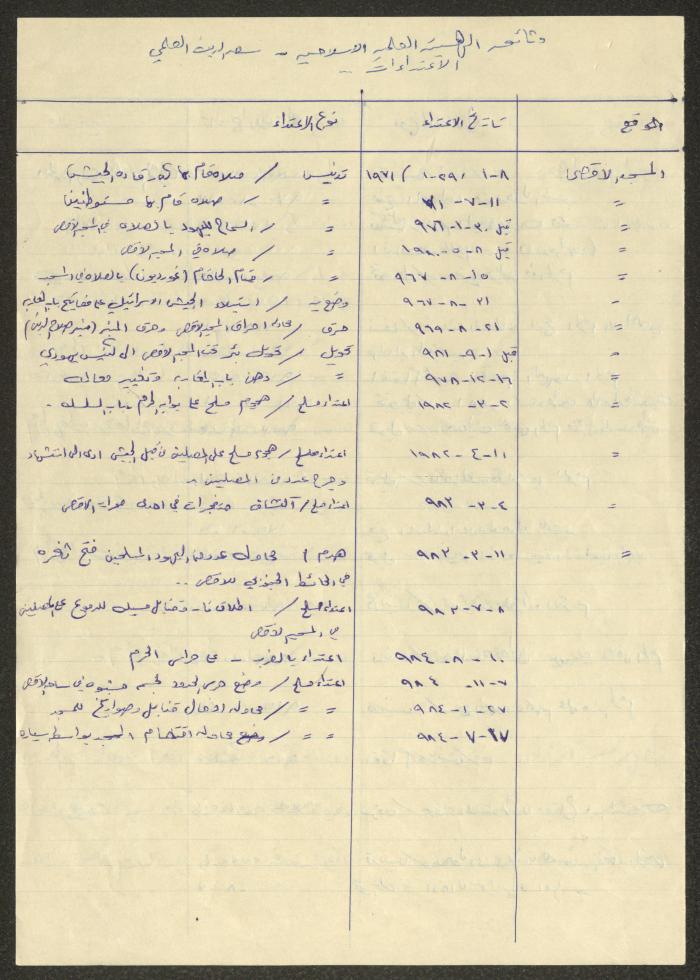 وثائق الهيئة العلمية الاسلامية - سعد الدين العلمي
الاعتداءات
الموقع تاريخ الاعتداء نوع الاعتداء
المسجد الاقصى ٨-١، ٢٩-١ / ١٩٧١ تدنيس / صلاة قام بها قادة الجيش
= ١١-٧-٧١ = / صلاة قام بها مستوطنين
= قبل ٣٠-١-٩٧٦ = / السماح لليهود بالصلاة في المسجد الاقصى
= قبل ٨-٥-١٩٨٠ = / صلاة في المسجد الاقصى
= ١٥-٨-٩٦٧ = / قيام الحاخام (غوريون) بالصلاة في المسجد
= ٣١-٨-٩٦٧ وضع يد / استيلاء الجيش الاسرائيلي على مفاتيح باب المغاربة
= ٢١-٨-٩٦٩ حرق / محاولة احراق المسجد الاقصى وحرق المنبر (منبر صلاح الدين)
= قبل ١-٩-٩٨١ تحويل / تحويل بئر تحت المسجد الاقصى الى كنيس يهودي
= ١٦-١٢-٩٧٨ = / دهن باب المغاربة وتغيير معالمه
= ٢-٣-١٩٨٢ اعتداء مسلح / هجوم مسلح على بوابة الحرم باب السلسلة -
= ١١-٤-١٩٨٢ اعتداء مسلح / هجوم مسلح على المصلين من قبل الجيش ادى الى استشهاد
وجرح عدد من المصلين -
= ٢-٣-٩٨٣ اعتداء مسلح / اكتشاف متفجرات في احدى ممرات الاقصى
= ١١-٣-٩٨٣ هدم / محاولة عدد من اليهود المسلحين فتح ثغرة
في الحائط الجنوبي للاقصى ..
٨-٧-٩٨٣ اعتداء مسلح / اطلاق نار وقنابل مسيلة للدموع على المصلين
في المسجد الاقصى
١٠-٨-٩٨٤ اعتداء بالضرب - على حراس الحرم
٧-١١-٩٨٤ اعتداء مسلح / وضع حرس الحدود لجسم مشبوه في ساحة الاقصى
٢٧-١-٩٨٤ = = / محاولة ادخال قنابل وصواريخ للمسجد
١٧-٧-٩٨٤ = = / محاولة اقتحام المسجد بواسطة سيارة